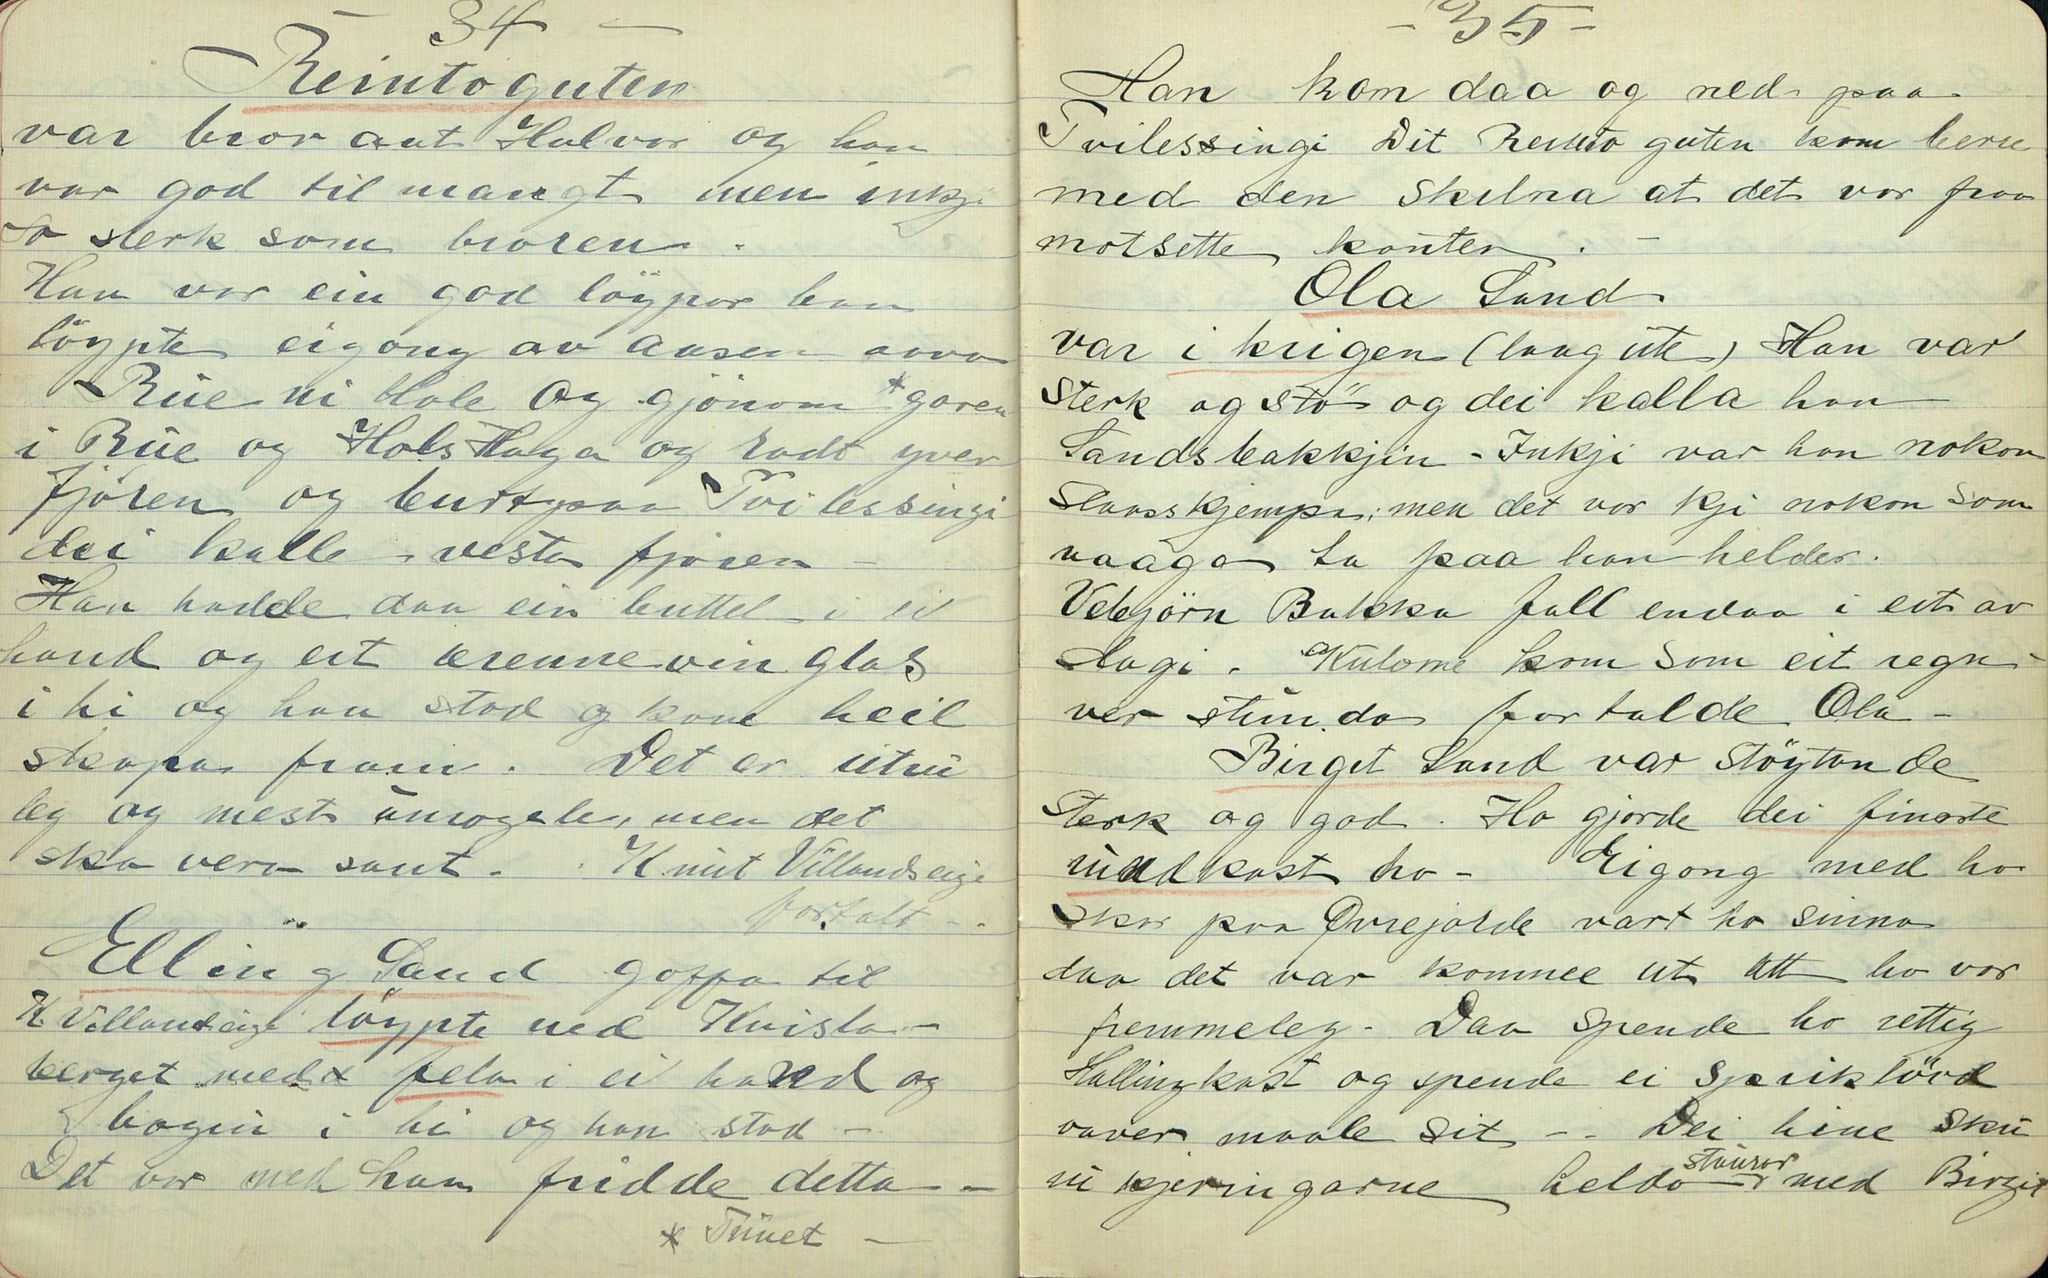 34 -
Reintoguten
var bror aat Halvor og han
var god til mangt men inkji
so sterk som broren.
Han var ein god löypar han
löypte eigong av aasen ovva
Rue ni Hole og gjönom *garen
i Rue og Hols Haga og radt yver
fjören og burtpaa Tvilessingi
dei kalle vesta fjören -
Han hadde daa ein buttel i ei
hand og eit brennevin glas
i hi og han stod og kom heil
skapa fram. Det er utru
leg og mest umogele, men det
ska vera sant. Knut Villandseige
fortalt -
Elling Sand goffa til
K Villandseige löypte ned Kvisla-
berget med fela i ei hand og
bogin i hi og han stod -
Det var med han fridde detta -
* Tunet -
- 35 -
Han kom daa og ned paa
Tvilessingi Dit Reinto guten kom berre
med den skilna at det var fraa
motsette kanten. -
Ola Sand
var i krigen (laag ute) Han var
sterk og stö og dei kalla han
Sandsbakkjin - Inkji var han nokon
slaasskjempe; men det var kji nokon som
vaaga ta paa han helder.
Vebjörn Bakka fall endaa i eit av
slagi. Kulorne kom som eit regn-
ver stunda fortalde Ola -
Birget Sand var stöytande
sterk og god. Ho gjorde dei finaste
rundkast ho - Eigong med ho
skar paa Øvrejorde vart ho sinna
daa det var kommee ut att ho var
fremmeleg - Daa spende ho rettig
Hallingkast og spende ei spriktörd
aaver maale sit -. Dei hine sku
ru kjeringarne heldo staurar med Birgit